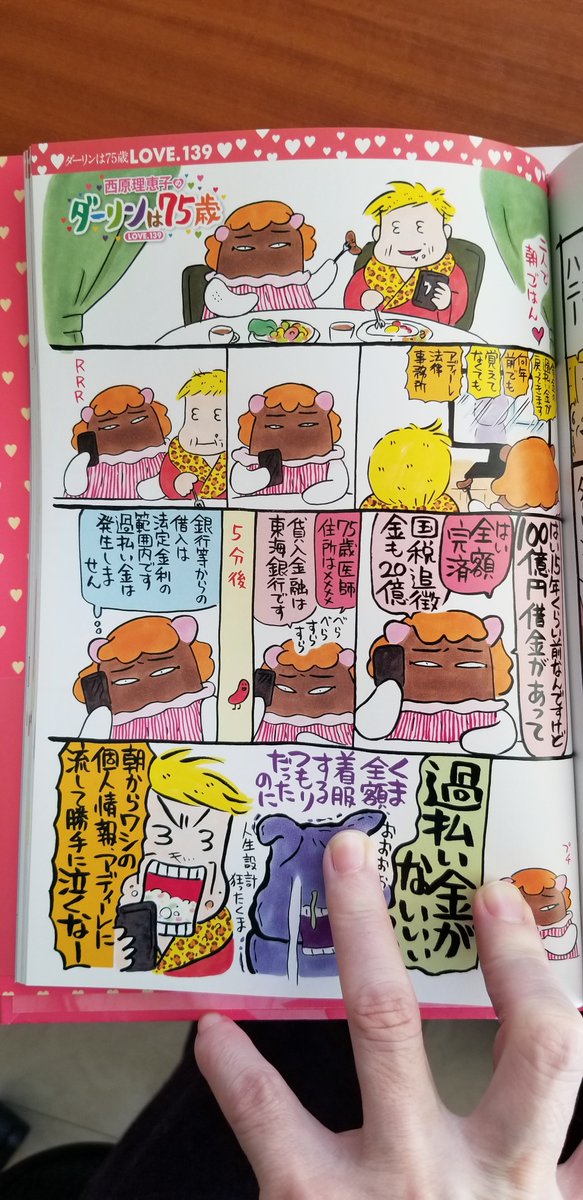 ダーリンは75歳 LOVE.139
西原理恵子の
ダーリンは75歳
LOVE.139
二人で
朝ごはん
戻ってきます
何年
前でも
覚えて
なくても
アディーレ
法律
事務所
RRR
はい15年くらい前なんですけど
100億円借金があって
はい
全額
完済
国税追徴
金も20億
75歳医師
住所は××××
べらべら
貸入金融は
東海銀行です
すらすら
5分後
銀行等からの
借入は
法定金利の
範囲内です
過払い金は
発生しま
せん
プチ
過払い金が
ないいい
おおおお
くま
全額
着服
する
つもり
だった
のに
人生設計
狂ったくま
朝からワシの
個人情報アディーレに
流して勝手に泣くなー
ハニー